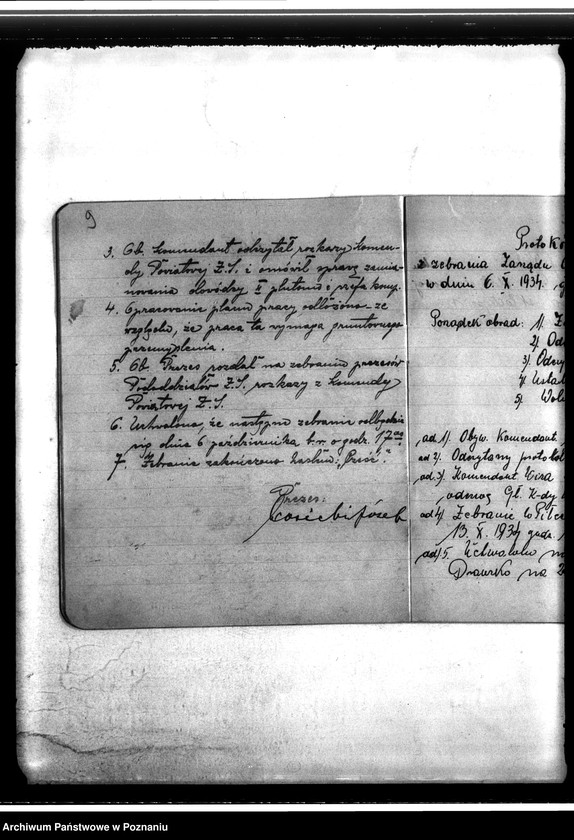 9
3. Ob. Komendant odczytał rozkazy Komen-
dy Powiatowej Z.S. i omówił sprawę zamia-
nowania dowódcy II plutonu i szefa komp.
4. Opracowanie planu pracy odłożono ze
względu, że praca ta wymaga gruntownego
przemyślenia.
5. Ob. Prezes rozdał na zebraniu prezesów
Pododdziałów Z.S. rozkazy z Komendy
Powiatowej Z.S.
6. Uchwalono, że następne zebranie odbędzie
się dnia 6 października b.r. o godz. 17
7. Zebranie zakończono hasłem: "Cześć".
Prezes:
Protokó
z zebrania Zarządu
w dniu 6. X. 1934.
Porządek obrad: 1/. Z
2/. Od
3/. Odczy
4/. Ustal
5/. Wol
ad 1/. Obyw. Komendant
ad 2/. Odczytany protokół
ad. 3/. Komendant
odnoś. Gł. K-dy
ad 4/. Zebranie w
13. X. 1934 godz.
ad/. 5. Uchwalono na
Drawsko na 2
Archiwum Państwowe w Poznaniu